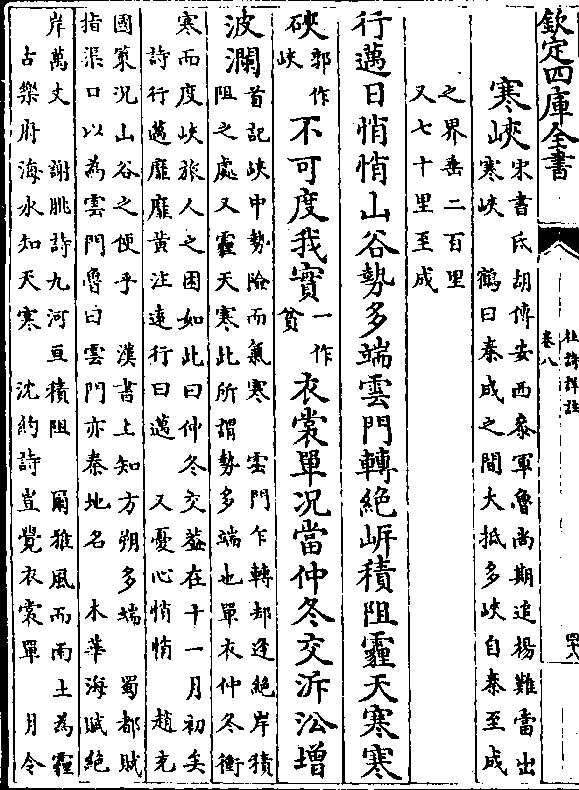 欽定四庫全書
卷八
杜詩詳註
四十八
寒峽
宋書氐胡傳安西參軍魯尚期追楊難當出
寒峽　鶴曰秦成之間大抵多峽自秦至成
之界垂二百里
又七十里至成
行邁日悄悄山谷勢多端雲門轉絶岸積阻霾天寒寒
硤
郭作
峽
不可度我實
一作
貧
衣裳單況當仲冬交泝㳂增
波瀾
首記峽中勢險而氣寒　雲門乍轉却逢絶岸積
阻之處又霾天寒此所謂勢多端也單衣仲冬衝
寒而度峽旅人之困如此曰仲冬交蓋在十一月初矣
詩行邁靡靡黄注遠行曰邁　又憂心悄悄　趙充
國策況山谷之便乎　漢書上知方朔多端　蜀都賦
指渠口以為雲門魯曰雲門亦秦地名　木華海賦絶
岸萬丈　謝朓詩九河亘積阻　爾雅風而雨土為霾
古樂府海水知天寒　沈約詩豈覺衣裳單　月令